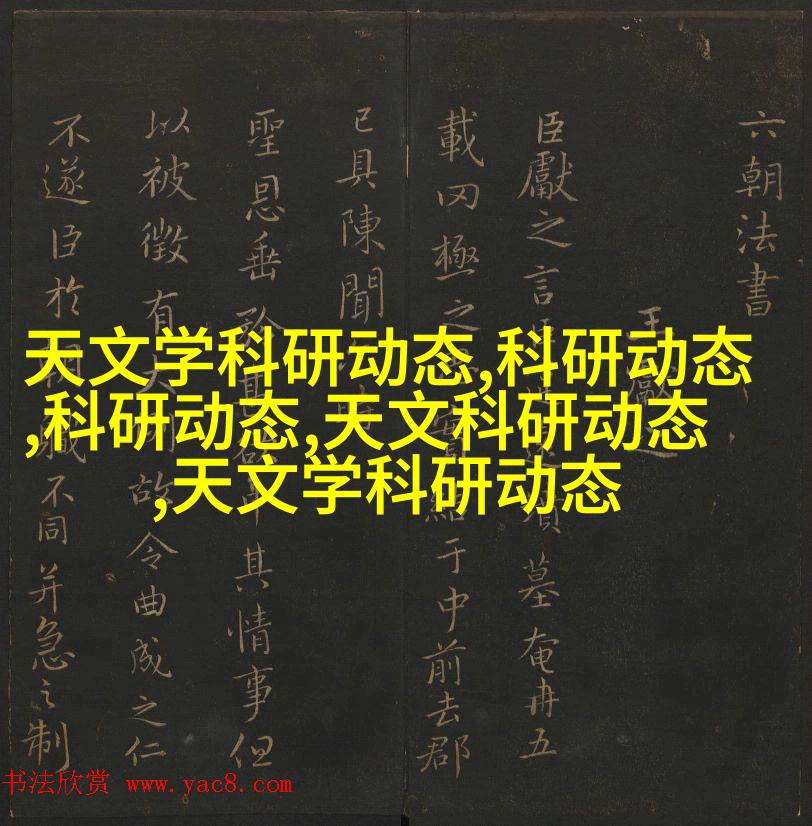 六朝法書
王獻之
臣獻之言 墳墓奄冉五
載罔極之 于中前去郡
已具陳聞
聖恩垂 其情事但
以被徵有 故令曲成之仁
不遂臣於 職不同并急之制
天文学科研动态,科研动态
,科研动态,天文科研动态
,天文学科研动态
书法欣赏 www.yac8.com